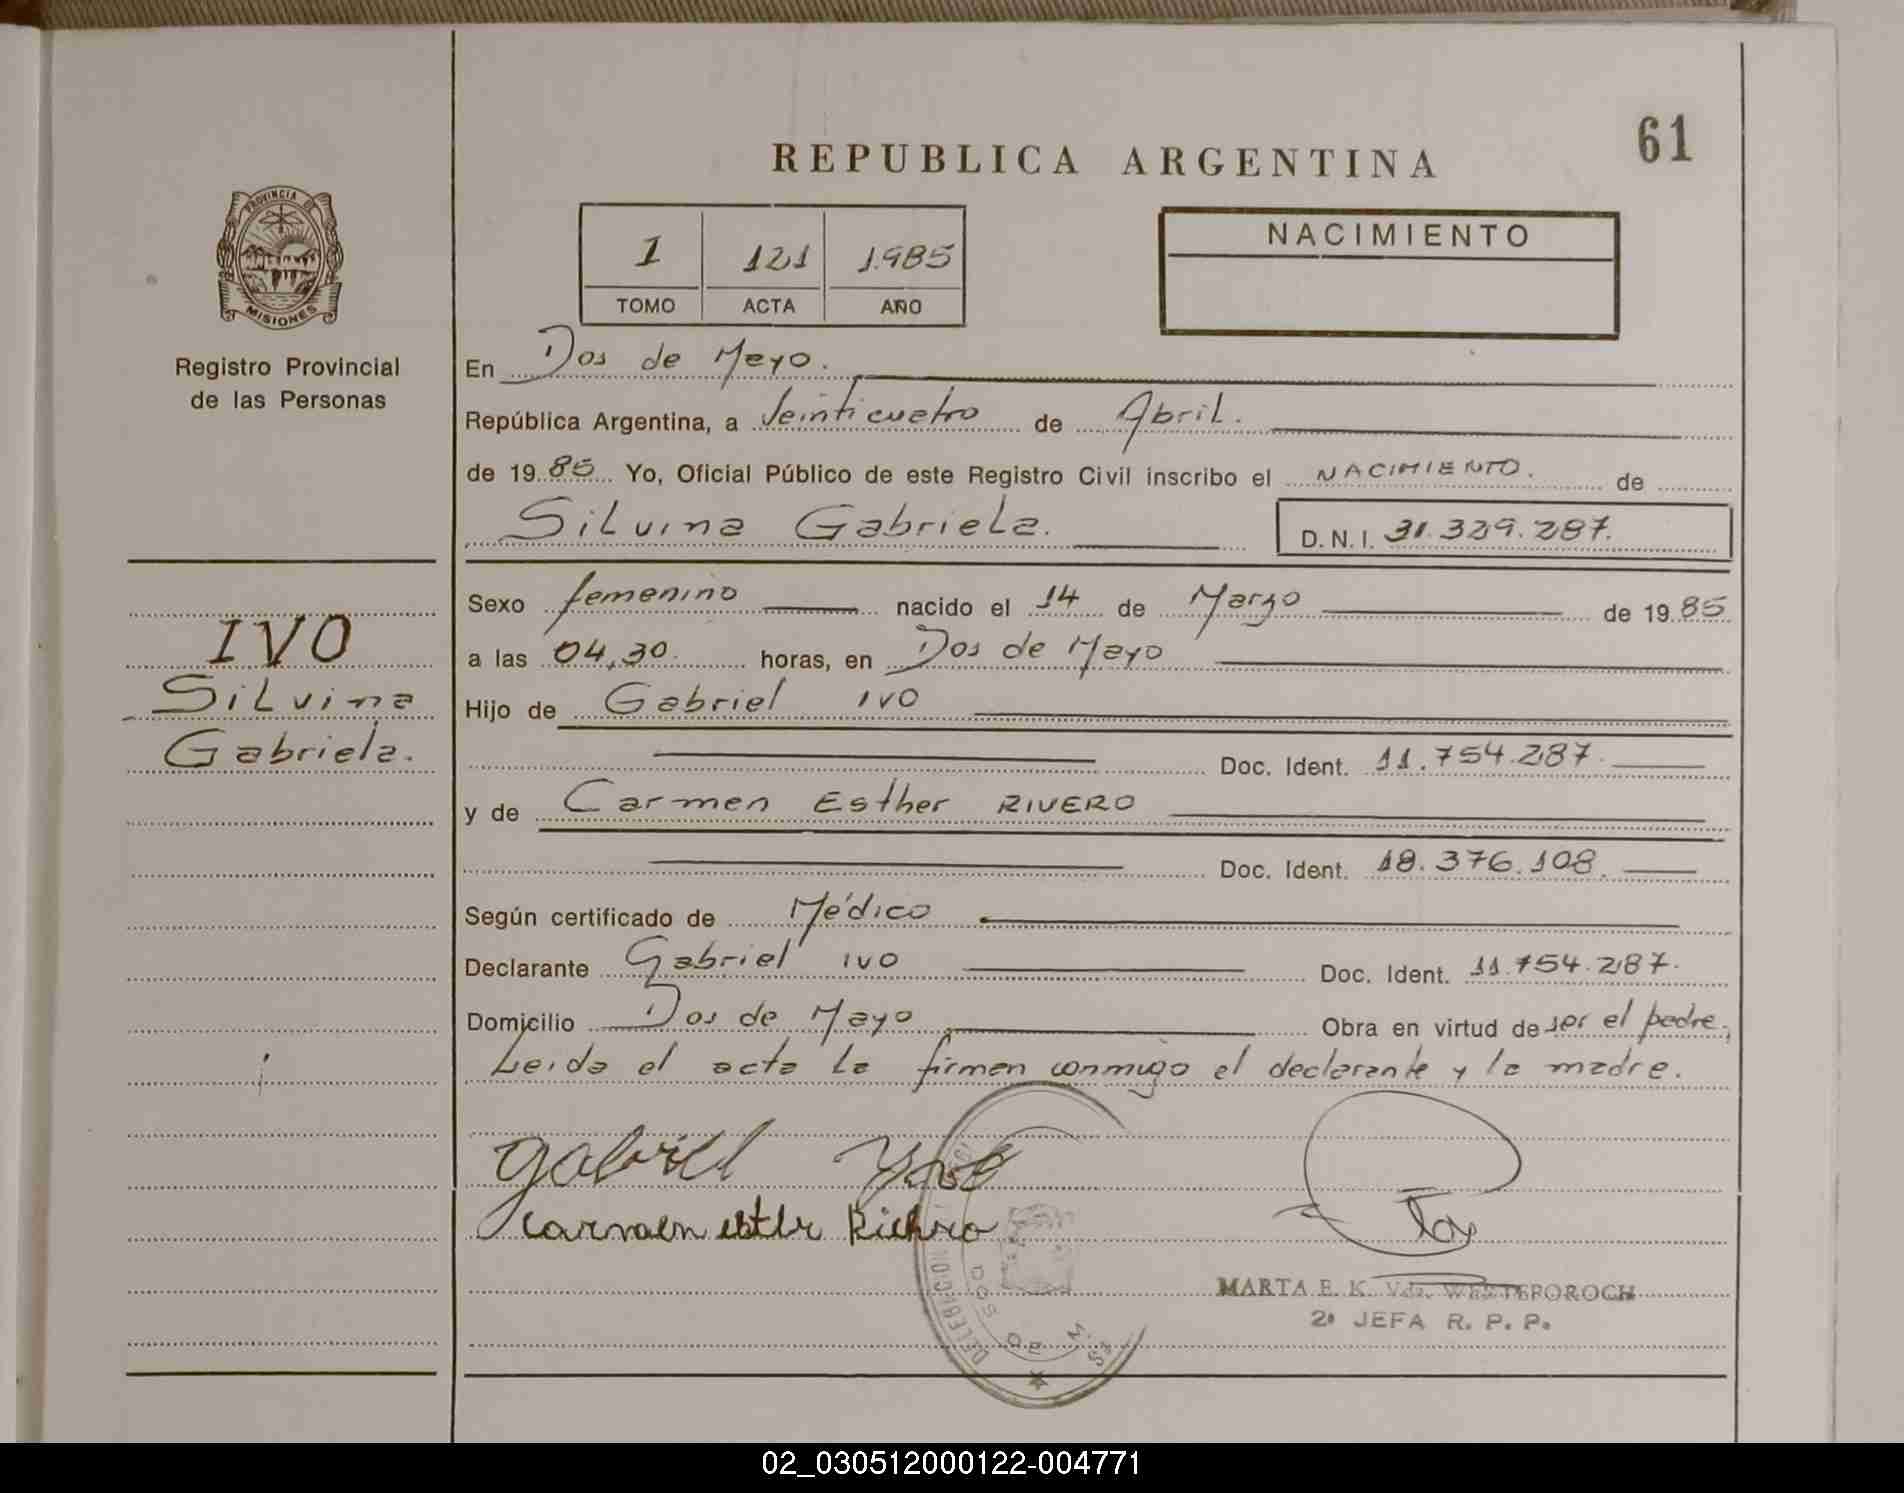 61
REPUBLICA ARGENTINA
PROVINCIA DE
MISIONES
Registro Provincial
de las Personas
1 121 1.985
TOMO ACTA AÑO
NACIMIENTO
En Dos de Mayo.
República Argentina, a Veinticuatro de Abril.
de 19 85 Yo, Oficial Público de este Registro Civil inscribo el NACIMIENTO. de
Silvina Gabriela. D.N.I. 31.329.287.
IVO
Silvina
Gabriela.
Sexo femenino nacido el 14 de Marzo de 19 85
a las 04,30. horas, en Dos de Mayo
Hijo de Gabriel IVO
Doc. Ident. 11.754.287.
y de Carmen Esther RIVERO
Doc. Ident. 18.376.108.
Según certificado de Médico
Declarante Gabriel IVO Doc. Ident. 11.754.287.
Domicilio Dos de Mayo Obra en virtud de ser el padre.
Leida el acta la firman conmigo el declarante y la madre.
gabriel
carmen
MARTA E. K. Vda.
2ª JEFA R. P. P.
DOS DE M
02_030512000122-004771